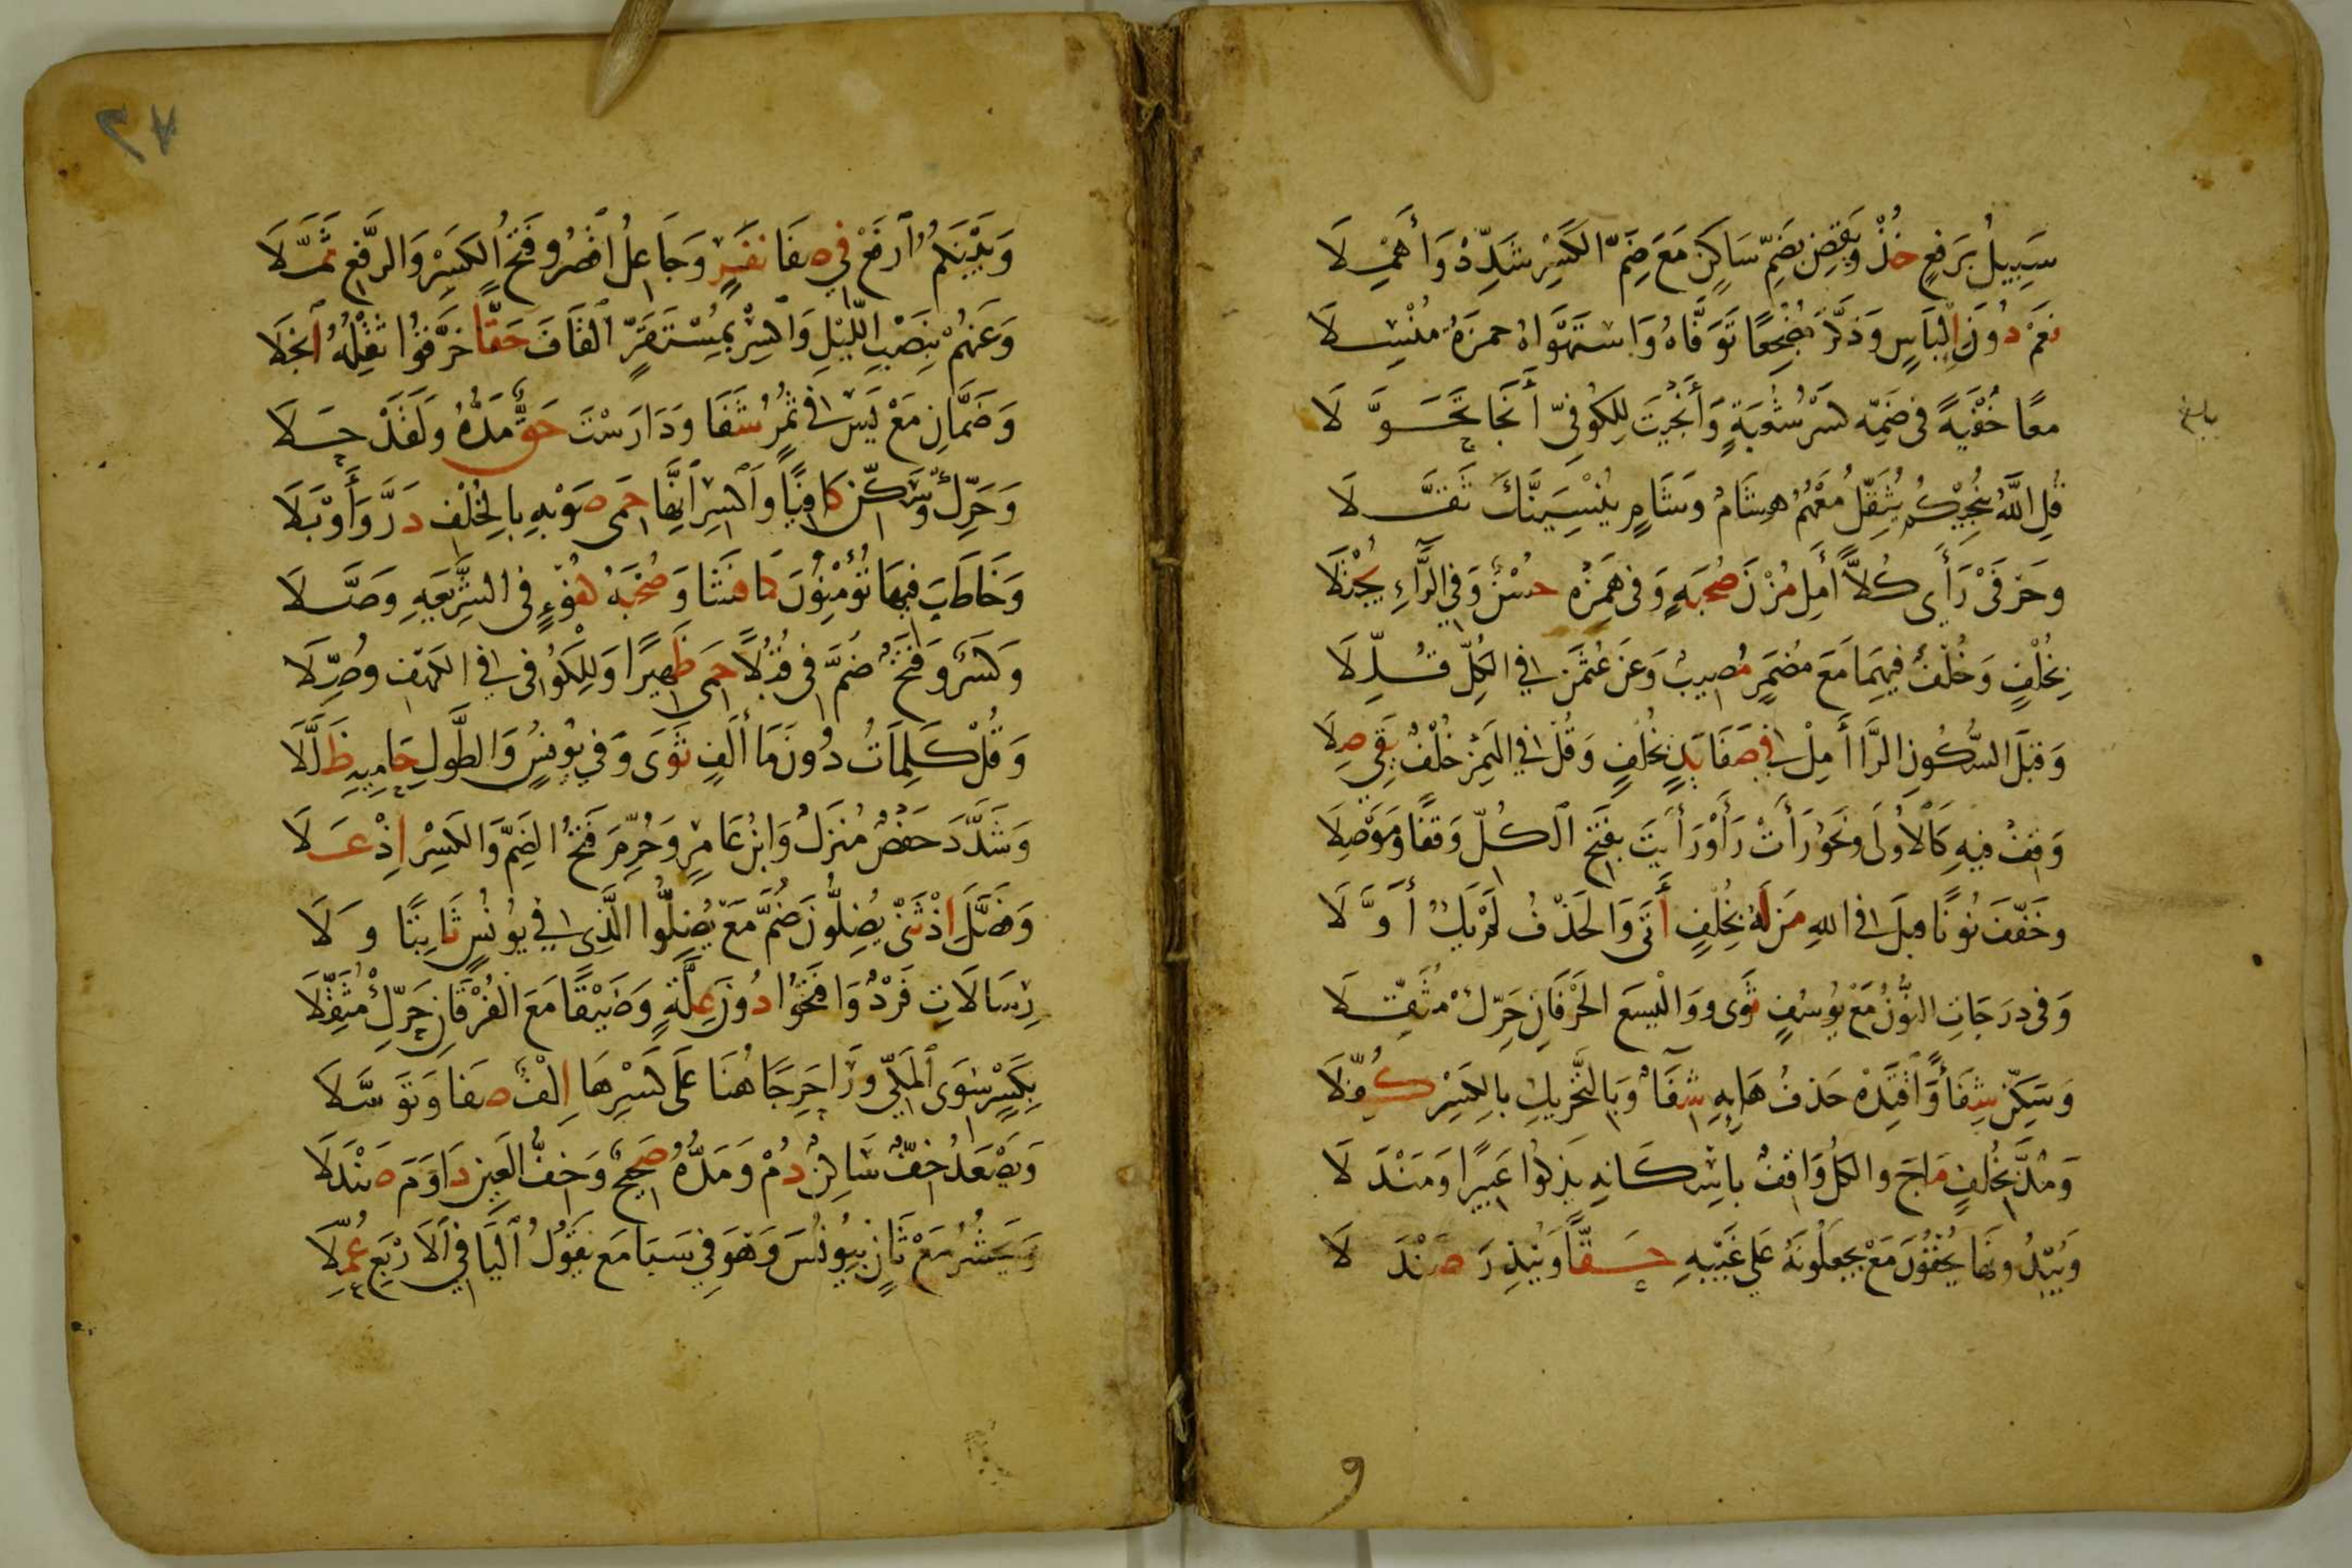 سَبِيلُ بِرَفعٍ خُذْ وَيَقضِ بِضَمِّ سَاكِنٍ مَعَ ضَمِّ الكَسْرِ شَدِّدْ وَأَهْمِلَا
نَعَمْ دُونَ إِلْبَاسٍ وَذَكَّرَ مُضْجِعًا تَوَفَّاهُ وَاسْتَهْوَاهُ حمزَةُ مُنْسِلَا
معًا خُفْيَةً فى ضَمِّهِ كَسْرُ شُعْبَةٍ وَأَنْجَيْتَ لِلكُوفِىِّ أَنْجَا تَحَوَّلَا
قُلِ اللَّهُ يُنْجِيكُمْ يُثَقِّلُ مَعْهُمُ هِشَامٌ وَشَامٍ يُنْسِيَنَّكَ ثَقَّلَا
وَحَرْفَىْ رَأَى كُلًّا أَمِلْ مُزْنَ صُحبَةٍ وَفى هَمْزِهِ حُسْنٌ وَفِي الرَّاءِ يُجْتَلَا
بِخُلْفٍ وَخُلْفٌ فِيهِمَا مَعَ مُضمَرٍ مُصِيبٌ وَعَن عُثمَنَ فِي الكُلِّ قَلِّلَا
وَقَبلَ السُّكُونِ الرَّا أَمِلْ فِي صَفَا يَدٍ بِخُلْفٍ وَقُلْ فِي الهَمْزِ خُلْفٌ يَقِي صِلَا
وَقِفْ فِيهِ كَالْأُولَى وَنَحْوُ رَأَتْ رَأَوْ رَأَيتَ بِفَتحِ الكُلِّ وَقفًا وَمَوْصِلَا
وَخَفّفَ نُونًا قبلَ فِي اللهِ مَن لَهُ بِخُلْفٍ أَتَى وَالحَذْفُ لَمْ يَكُ أَوَّلَا
وَفى دَرَجَاتِ النُّونُ مَعْ يُوسُفٍ ثَوَى وَوَالْيَسَعَ الحَرْفَانِ حَرِّكْ مُثَقِّلَا
وَسَكِّنْ شِفَاءً وَاقْتَدِهْ حَذفُ هَائِهِ شِفَاءٌ وَبِالتَّحْرِيكِ بِالكَسْرِ كُفِّلَا
وَمُدَّ بِخُلْفٍ مَاجَ والكُلُّ وَاقِفٌ بِاسْكَانِهِ يَذكُوا عَبِيرًا وَمَنْدَلَا
وَيُبْدُونَهَا يُخْفُونَ مَعْ يَجعَلُونَهُ عَلى غَيْبِهِ حَقًّا وَيُنذِرَ صَنْدَلَا
و
٢٧
وَبَيْنَكُمُ ارفَعْ فِي صَفَا نَفَرٍ وَجَاعِلُ اقْصُرْ وَفَتحُ الكَسْرِ وَالرَّفعِ ثُمِّلَا
وَعَنهُمْ بِنَصْبِ اللَّيْلِ وَاكْسِرْ بِمُسْتَقَرٌّ القَافَ حَقًّا خَرَّقُوا ثِقْلُهُ انجَلَا
وَضَمَّانِ مَعْ يَس فِى ثُمُرٍ شَفَا وَدَارَسْتَ حَقٌّ مَدُّهُ وَلَقَدْ حَلَا
وَحَرِّكْ وَسَكِّنْ كَافِيًا وَاكْسِرِ انَّهَا حِمَى صَوْبِهِ بِالخُلْفِ دَرَّ وَأَوْبَلَا
وَخَاطَبَ فِيهَا تُؤْمِنُونَ كَمَا فَشَا وَصُحْبَةُ كُفْؤٍ فى الشَّرِيعَةِ وَصَّلَا
وَكَسرٌ وَفَتحٌ ضُمَّ فِى قُبُلًا حَمَى ظَهِيرًا وَلِلكُوفِى فِي الكَهفِ وُصِّلَا
وَقُلْ كَلِمَاتُ دُونَ مَا أَلِفٍ ثَوَى وَفِي يُونُسٍ وَالطَّولِ حَامِيهِ ظَلَّلَا
وَشَدَّدَ حَفصٌ مُنزَلٌ وَابنُ عَامِرٍ وَحُرِّمَ فَتحُ الضَمِّ وَالكَسْرِ إِذْ عَلَا
وَفَصَّلَ اذْ ثَنَّى يَضِلُّونَ ضُمَّ مَعْ يَضِلُّوا الَّذِى فِي يُونُسٍ ثَابِتًا وَلَا
رِسَالَاتِ فَرْدٌ وَافتَحُوا دُونَ عِلَّةٍ وَضَيْقًا مَعَ الفُرْقَانِ حَرِّكْ مُثَقِّلَا
بِكَسْرٍ سِوَى المَكِّي وَرَا حَرِجًا هُنَا عَلَى كَسْرِهَا اِلْفٌ صَفَا وَتَوَسَّلَا
وَيَصْعَدُ خِفٌّ سَاكِنٌ دُمْ وَمَدُّهُ صَحِيحٌ وَخِفُّ العَينِ دَاوَمَ صَنْدَلَا
وَيَحشُرُ مَعْ ثَانٍ بِيُونُسَ وَهوَ فِي سَبَا مَع نَقُولُ اليَا فِي الَارْبَعِ عُمِّلَا